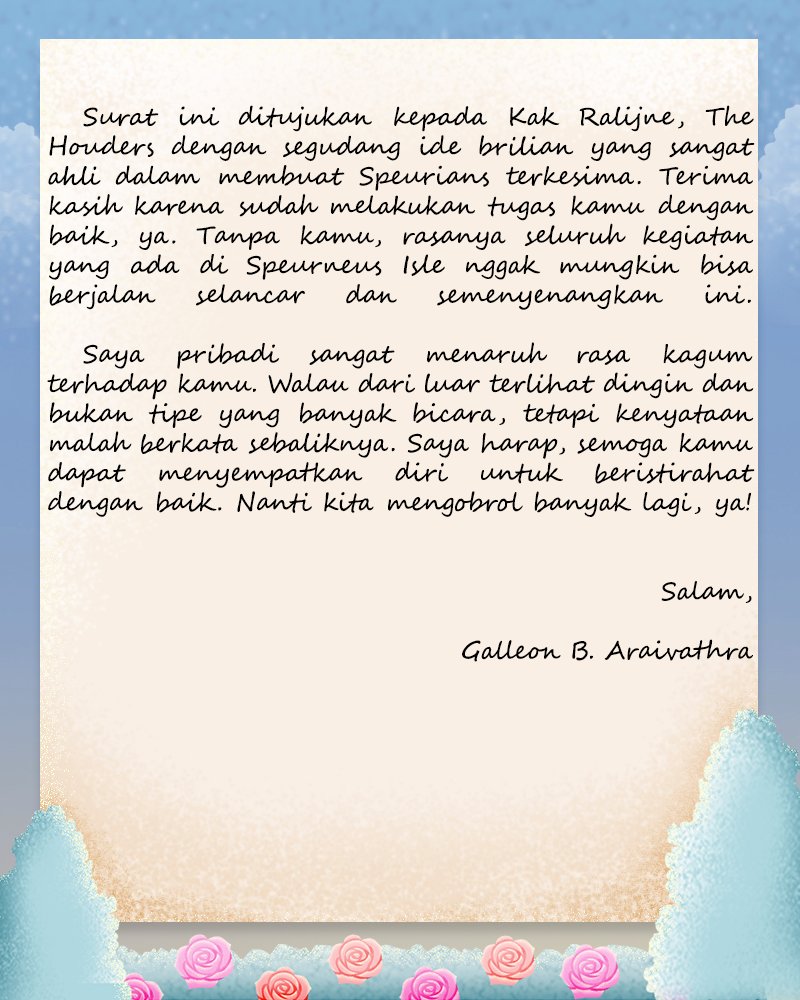 Surat ini ditujukan kepada Kak Ralijne, The
Houders dengan segudang ide brilian yang sangat
ahli dalam membuat Speurians terkesima. Terima
kasih karena sudah melakukan tugas kamu dengan
baik, ya. Tanpa kamu, rasanya seluruh kegiatan
yang ada di Speurneus Isle nggak mungkin bisa
berjalan selancar dan semenyenangkan ini.
Saya pribadi sangat menaruh rasa kagum
terhadap kamu. Walau dari luar terlihat dingin dan
bukan tipe yang banyak bicara, tetapi kenyataan
malah berkata sebaliknya. Saya harap, semoga kamu
dapat menyempatkan diri untuk beristirahat
dengan baik. Nanti kita mengobrol banyak lagi, ya!
Salam,
Galleon B. Araivathra